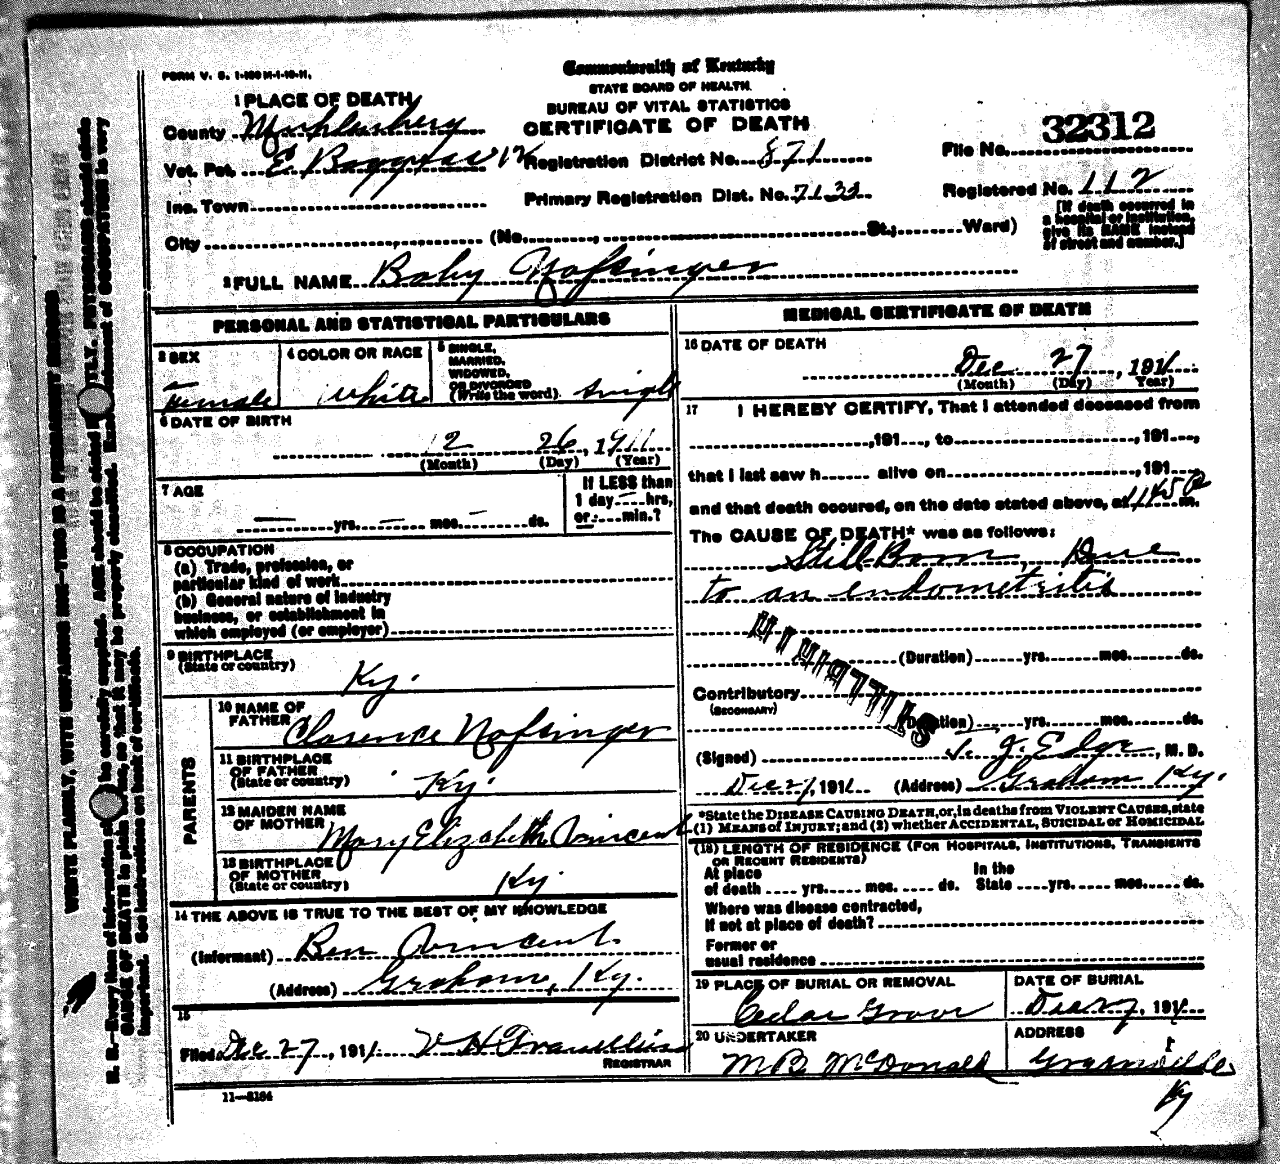 FORM V. S. 1-100 M-1-10-11.
Commonwealth of Kentucky
STATE BOARD OF HEALTH.
BUREAU OF VITAL STATISTICS
CERTIFICATE OF DEATH
1 PLACE OF DEATH
County Muhlenberg
Vot. Pct. E
Inc. Town
City (No. , St.; Ward)
Registration District No. 871
Primary Registration Dist. No. 7133
File No. 32312
Registered No. 112
[If death occurred in
a hospital or institution,
give its NAME instead
of street and number.]
2 FULL NAME Baby Nofsinger
PERSONAL AND STATISTICAL PARTICULARS
3 SEX
Female
4 COLOR OR RACE
White
5 SINGLE,
MARRIED,
WIDOWED,
OR DIVORCED
(Write the word) Single
6 DATE OF BIRTH
12 26, 1911
(Month) (Day) (Year)
7 AGE
yrs. mos. ds.
If LESS than
1 day hrs,
or min.?
8 OCCUPATION
(a) Trade, profession, or
particular kind of work
(b) General nature of industry
business, or establishment in
which employed (or employer)
9 BIRTHPLACE
(State or country)
Ky.
PARENTS
10 NAME OF
FATHER Clarence Nofsinger
11 BIRTHPLACE
OF FATHER
(State or country) Ky.
12 MAIDEN NAME
OF MOTHER Mary Elizabeth Vincent
13 BIRTHPLACE
OF MOTHER
(State or country) Ky.
14 THE ABOVE IS TRUE TO THE BEST OF MY KNOWLEDGE
(Informant) Ben Vincent.
(Address) Graham, Ky.
15
Filed Dec 27, 1911. V H
REGISTRAR
11—3184
MEDICAL CERTIFICATE OF DEATH
16 DATE OF DEATH
Dec 27, 1911
(Month) (Day) Year)
17 I HEREBY CERTIFY, That I attended deceased from
,191 , to ,191 ,
that I last saw h alive on ,191 ,
and that death occured, on the date stated above, at 1145 P m.
The CAUSE OF DEATH* was as follows:
Still-Born, Due
to an endometritis
(Duration) yrs. mos. ds.
Contributory
(SECONDARY)
(Duration) yrs. mos. ds.
(Signed) J. Edge, M. D.
Dec 27, 1911 (Address) Graham Ky.
*State the DISEASE CAUSING DEATH, or, in deaths from VIOLENT CAUSES, state
(1) MEANS of INJURY; and (2) whether ACCIDENTAL, SUICIDAL or HOMICIDAL
(18) LENGTH OF RESIDENCE (FOR HOSPITALS, INSTITUTIONS, TRANSIENTS
OR RECENT RESIDENTS)
At place In the
of death yrs. mos. ds. State yrs. mos. ds.
Where was disease contracted,
if not at place of death?
Former or
usual residence
19 PLACE OF BURIAL OR REMOVAL
Cedar Grove
DATE OF BURIAL
Dec 27, 1911
20 UNDERTAKER
M B McDonald
ADDRESS
Greenville
Ky
WRITE PLAINLY, WITH UNFADING INK—THIS IS A PERMANENT RECORD
N. B.—Every item of information be carefully supplied. AGE should be stated TLY. PHYSICIANS should state
CAUSE OF DEATH in plain so that it may be properly classified. of OCCUPATION is very
important. See instructions on back of certificate.